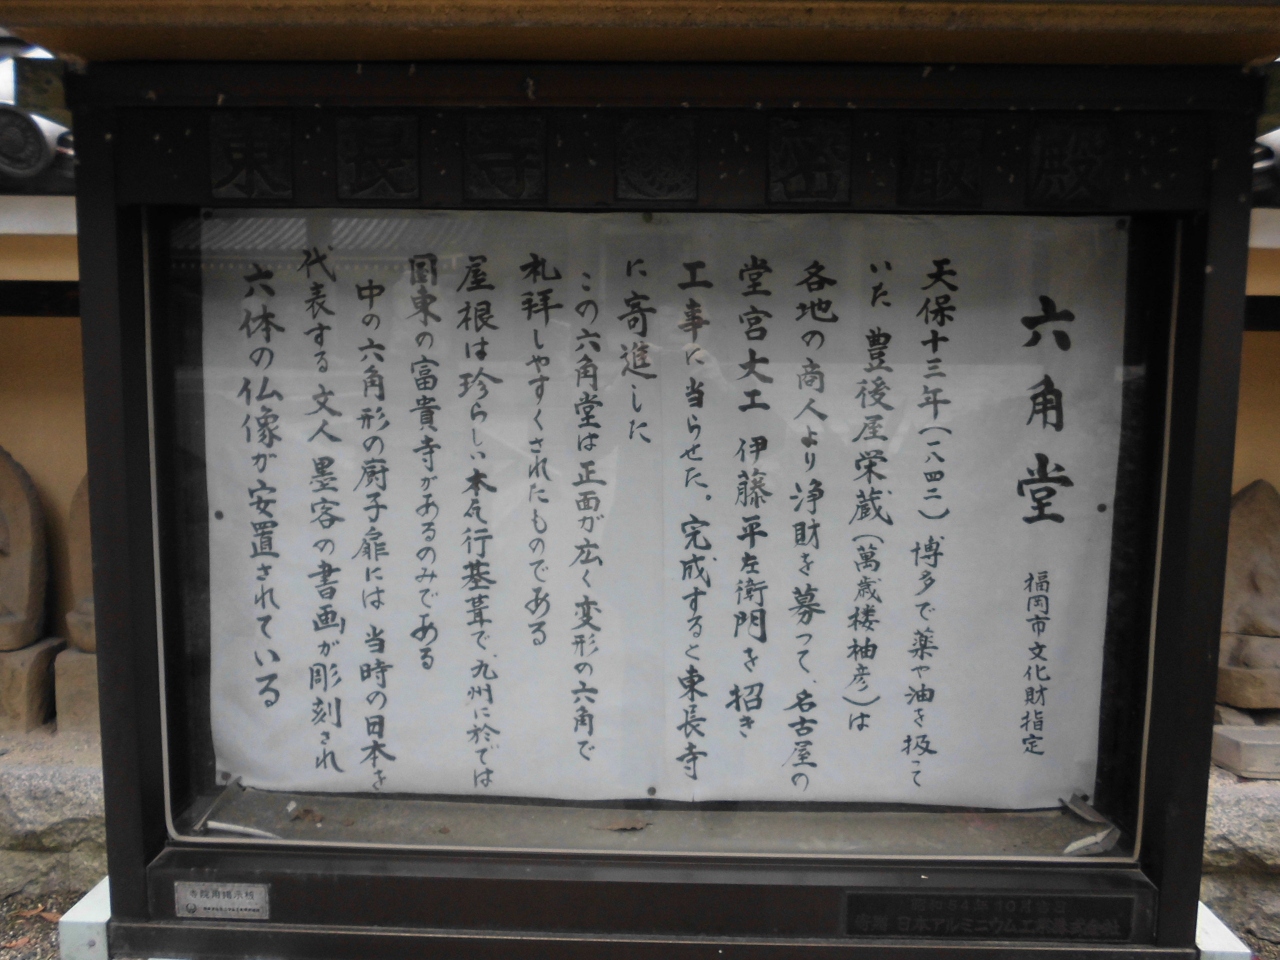 東長寺 密厳殿
六角堂 福岡市文化財指定
天保十三年(一八四二)博多で薬や油を扱って
いた 豊後屋栄蔵(萬歳楼柚彦)は
各地の商人より浄財を募って、名古屋の
堂宮大工 伊藤平左衛門を招き
工事に当らせた。完成すると東長寺
に寄進した
この六角堂は正面が広く変形の六角で
礼拝しやすくされたものである
屋根は珍らしい本瓦行基葺で、九州に於ては
国東の富貴寺があるのみである
中の六角形の厨子扉には 当時の日本を
代表する文人墨客の書画が彫刻され
六体の仏像が安置されている
寺院用掲示板
昭和54年10月吉日
寄贈 日本アルミニウム工業株式会社